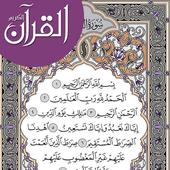 القرآن
الكريم
سُورَةُ
بِسْمِ اللَّهِ الرَّحْمَٰنِ الرَّحِيمِ ۝١
الْحَمْدُ لِلَّهِ رَبِّ الْعَالَمِينَ ۝٢
الرَّحْمَٰنِ الرَّحِيمِ ۝٣ مَالِكِ يَوْمِ الدِّينِ ۝٤
إِيَّاكَ نَعْبُدُ وَإِيَّاكَ نَسْتَعِينُ ۝٥ اهْدِنَا
الصِّرَاطَ الْمُسْتَقِيمَ ۝٦ صِرَاطَ الَّذِينَ أَنْعَمْتَ
عَلَيْهِمْ غَيْرِ الْمَغْضُوبِ عَلَيْهِمْ